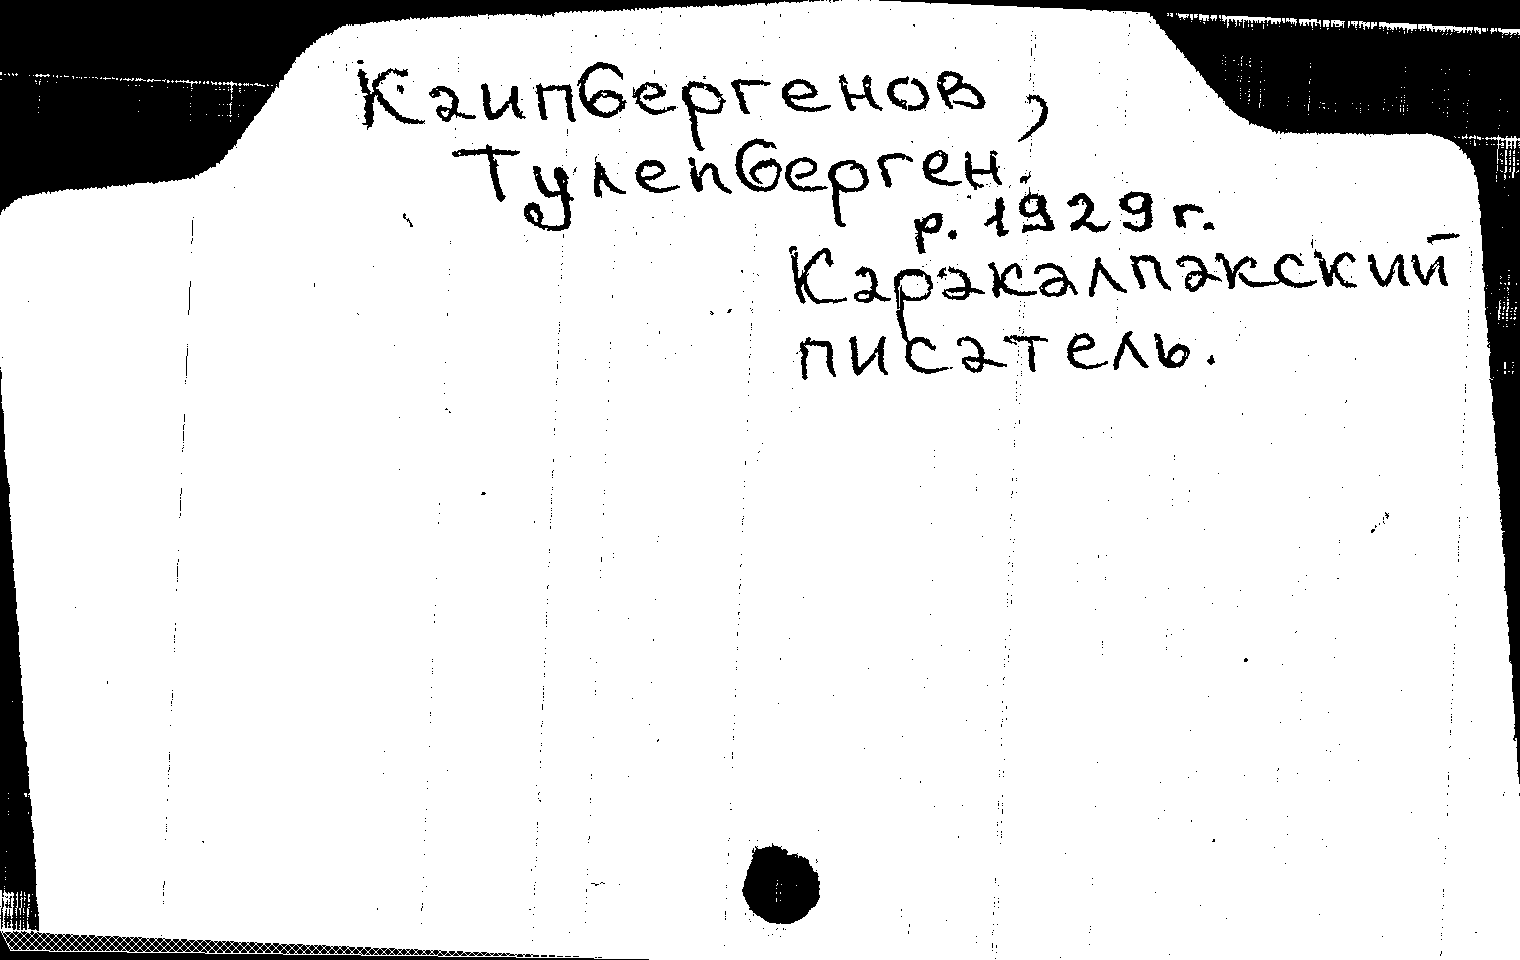 Каипбергенов,
Тулепберген.
р. 1929 г.
Каракалпакский
писатель.